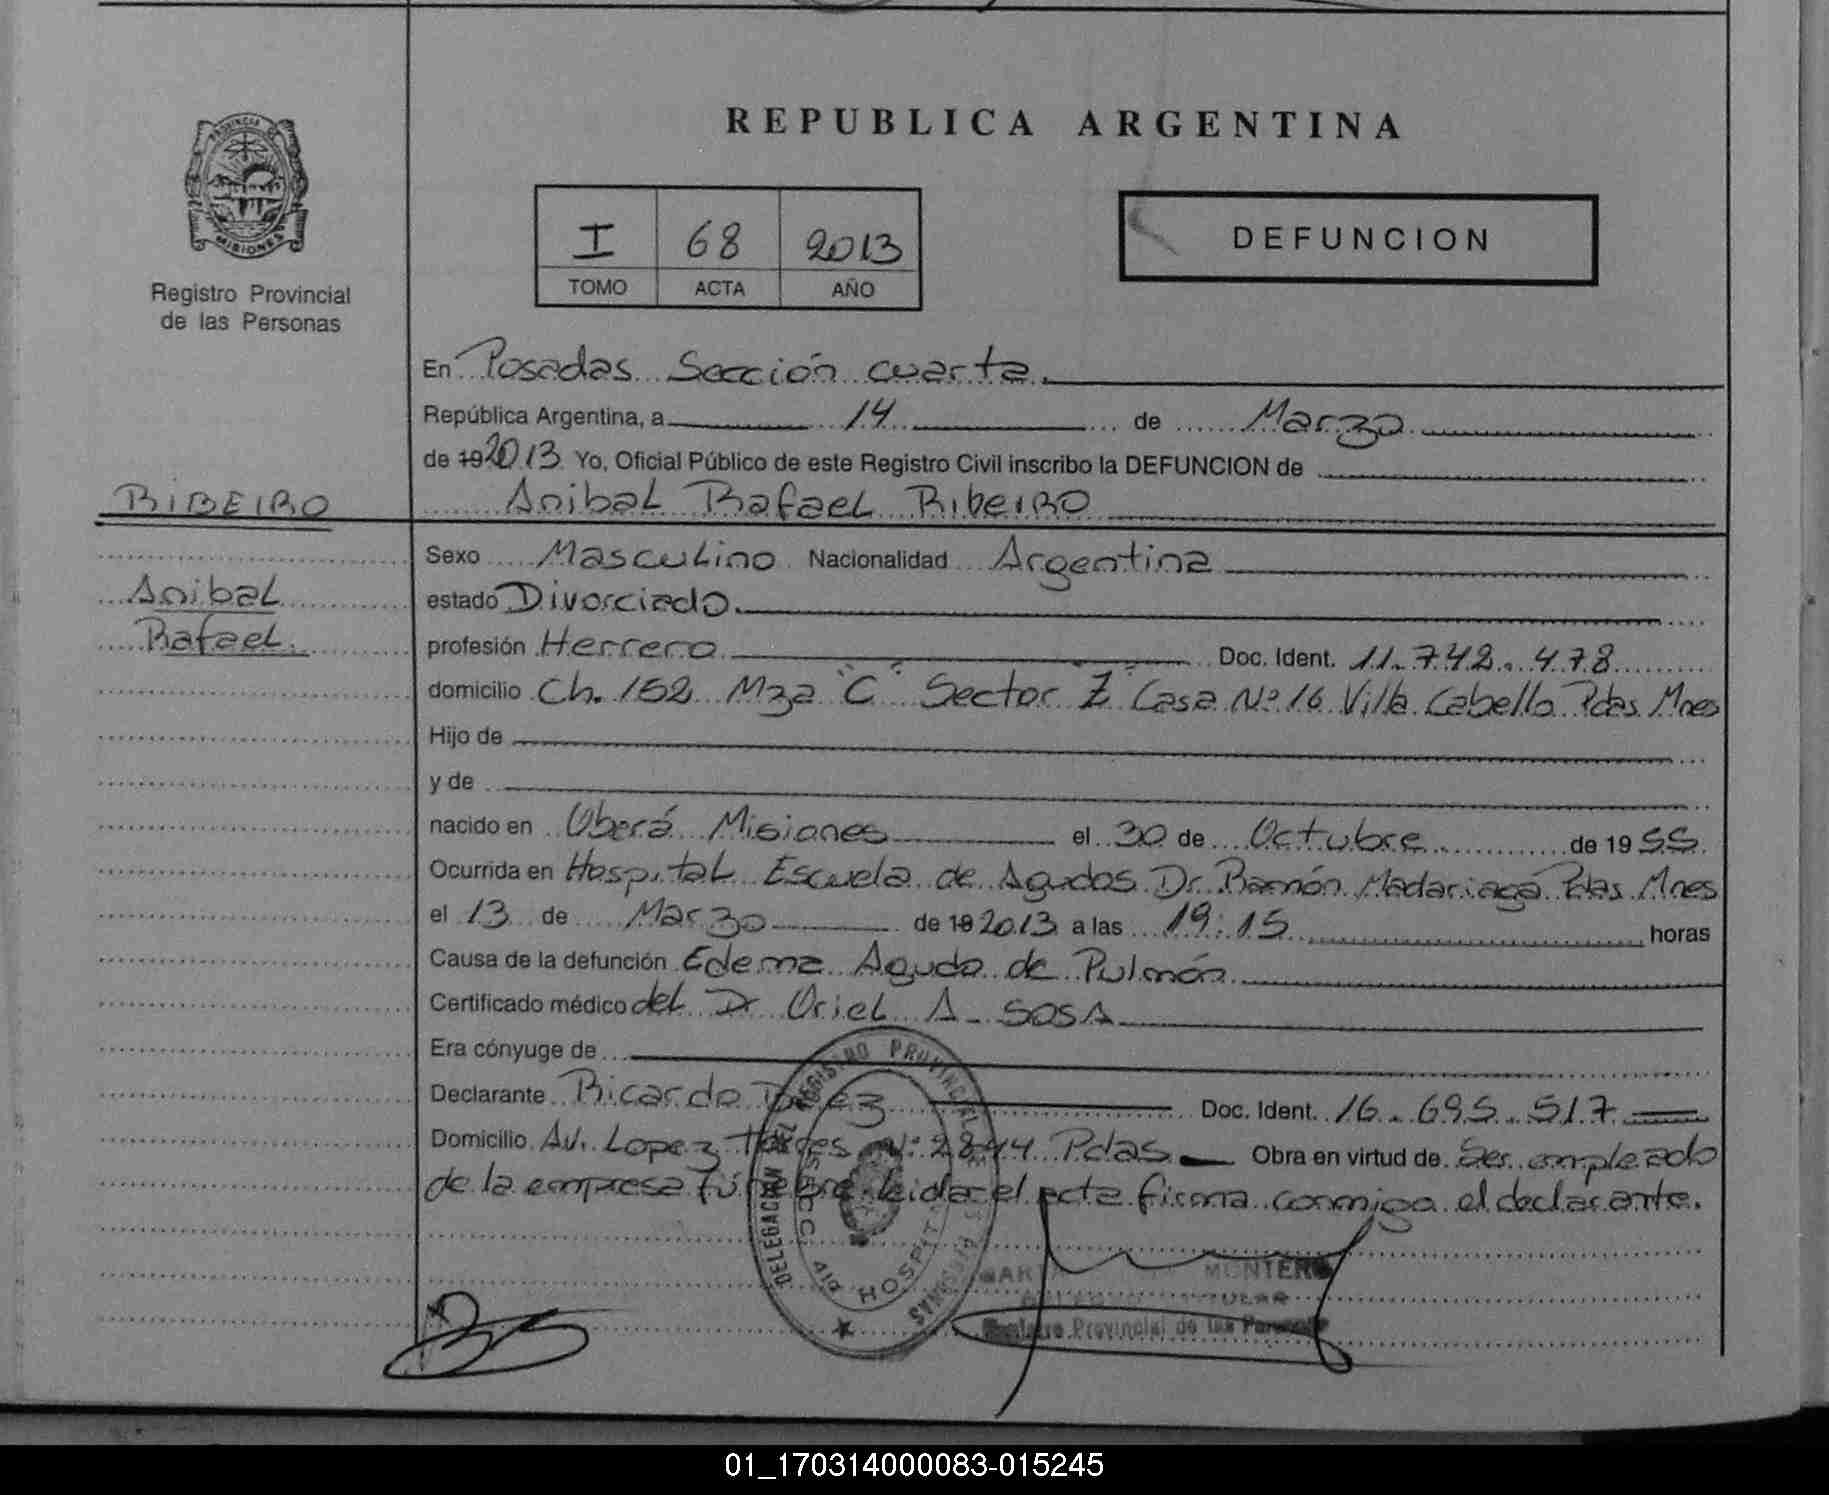 REPUBLICA ARGENTINA
PROVINCIA DE
MISIONES
Registro Provincial
de las Personas
I 68 2013
TOMO ACTA AÑO
DEFUNCION
En Posadas Sección cuarta
República Argentina, a 14 de Marzo
de 19 2013 Yo, Oficial Público de este Registro Civil inscribo la DEFUNCION de
RIBEIRO
Anibal Rafael Ribeiro
Anibal
Rafael
Sexo Masculino Nacionalidad Argentina
estado Divorciado
profesión Herrero Doc. Ident. 11.742.478
domicilio Ch. 152 Mza "C" Sector "Z" Casa Nº 16 Villa Cabello Pdas Mnes
Hijo de
y de
nacido en Oberá Misiones el 30 de Octubre de 1955
Ocurrida en Hospital Escuela de Agudos Dr. Ramón Madariaga Pdas Mnes
el 13 de Marzo de 19 2013 a las 19:15 horas
Causa de la defunción Edema Agudo de Pulmón
Certificado médico del Dr Oriel A. SOSA
Era cónyuge de
Declarante Ricardo Doc. Ident. 16.695.517
Domicilio Av. Lopez Torres Nº 2844 Pdas Obra en virtud de Ser empleado
de la empresa fúnebre leida el acta firma conmigo el declarante.
DELEGACION DEL REGISTRO PROVINCIAL DE LAS PERSONAS
SECC. 4ta HOSPITAL
MONTERO
TITULAR
Registro Provincial de las Personas
01_170314000083-015245